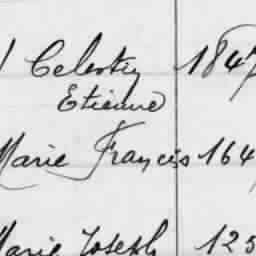 Celestin 1847
Etienne
Marie Francis 164
Marie Joseph 125